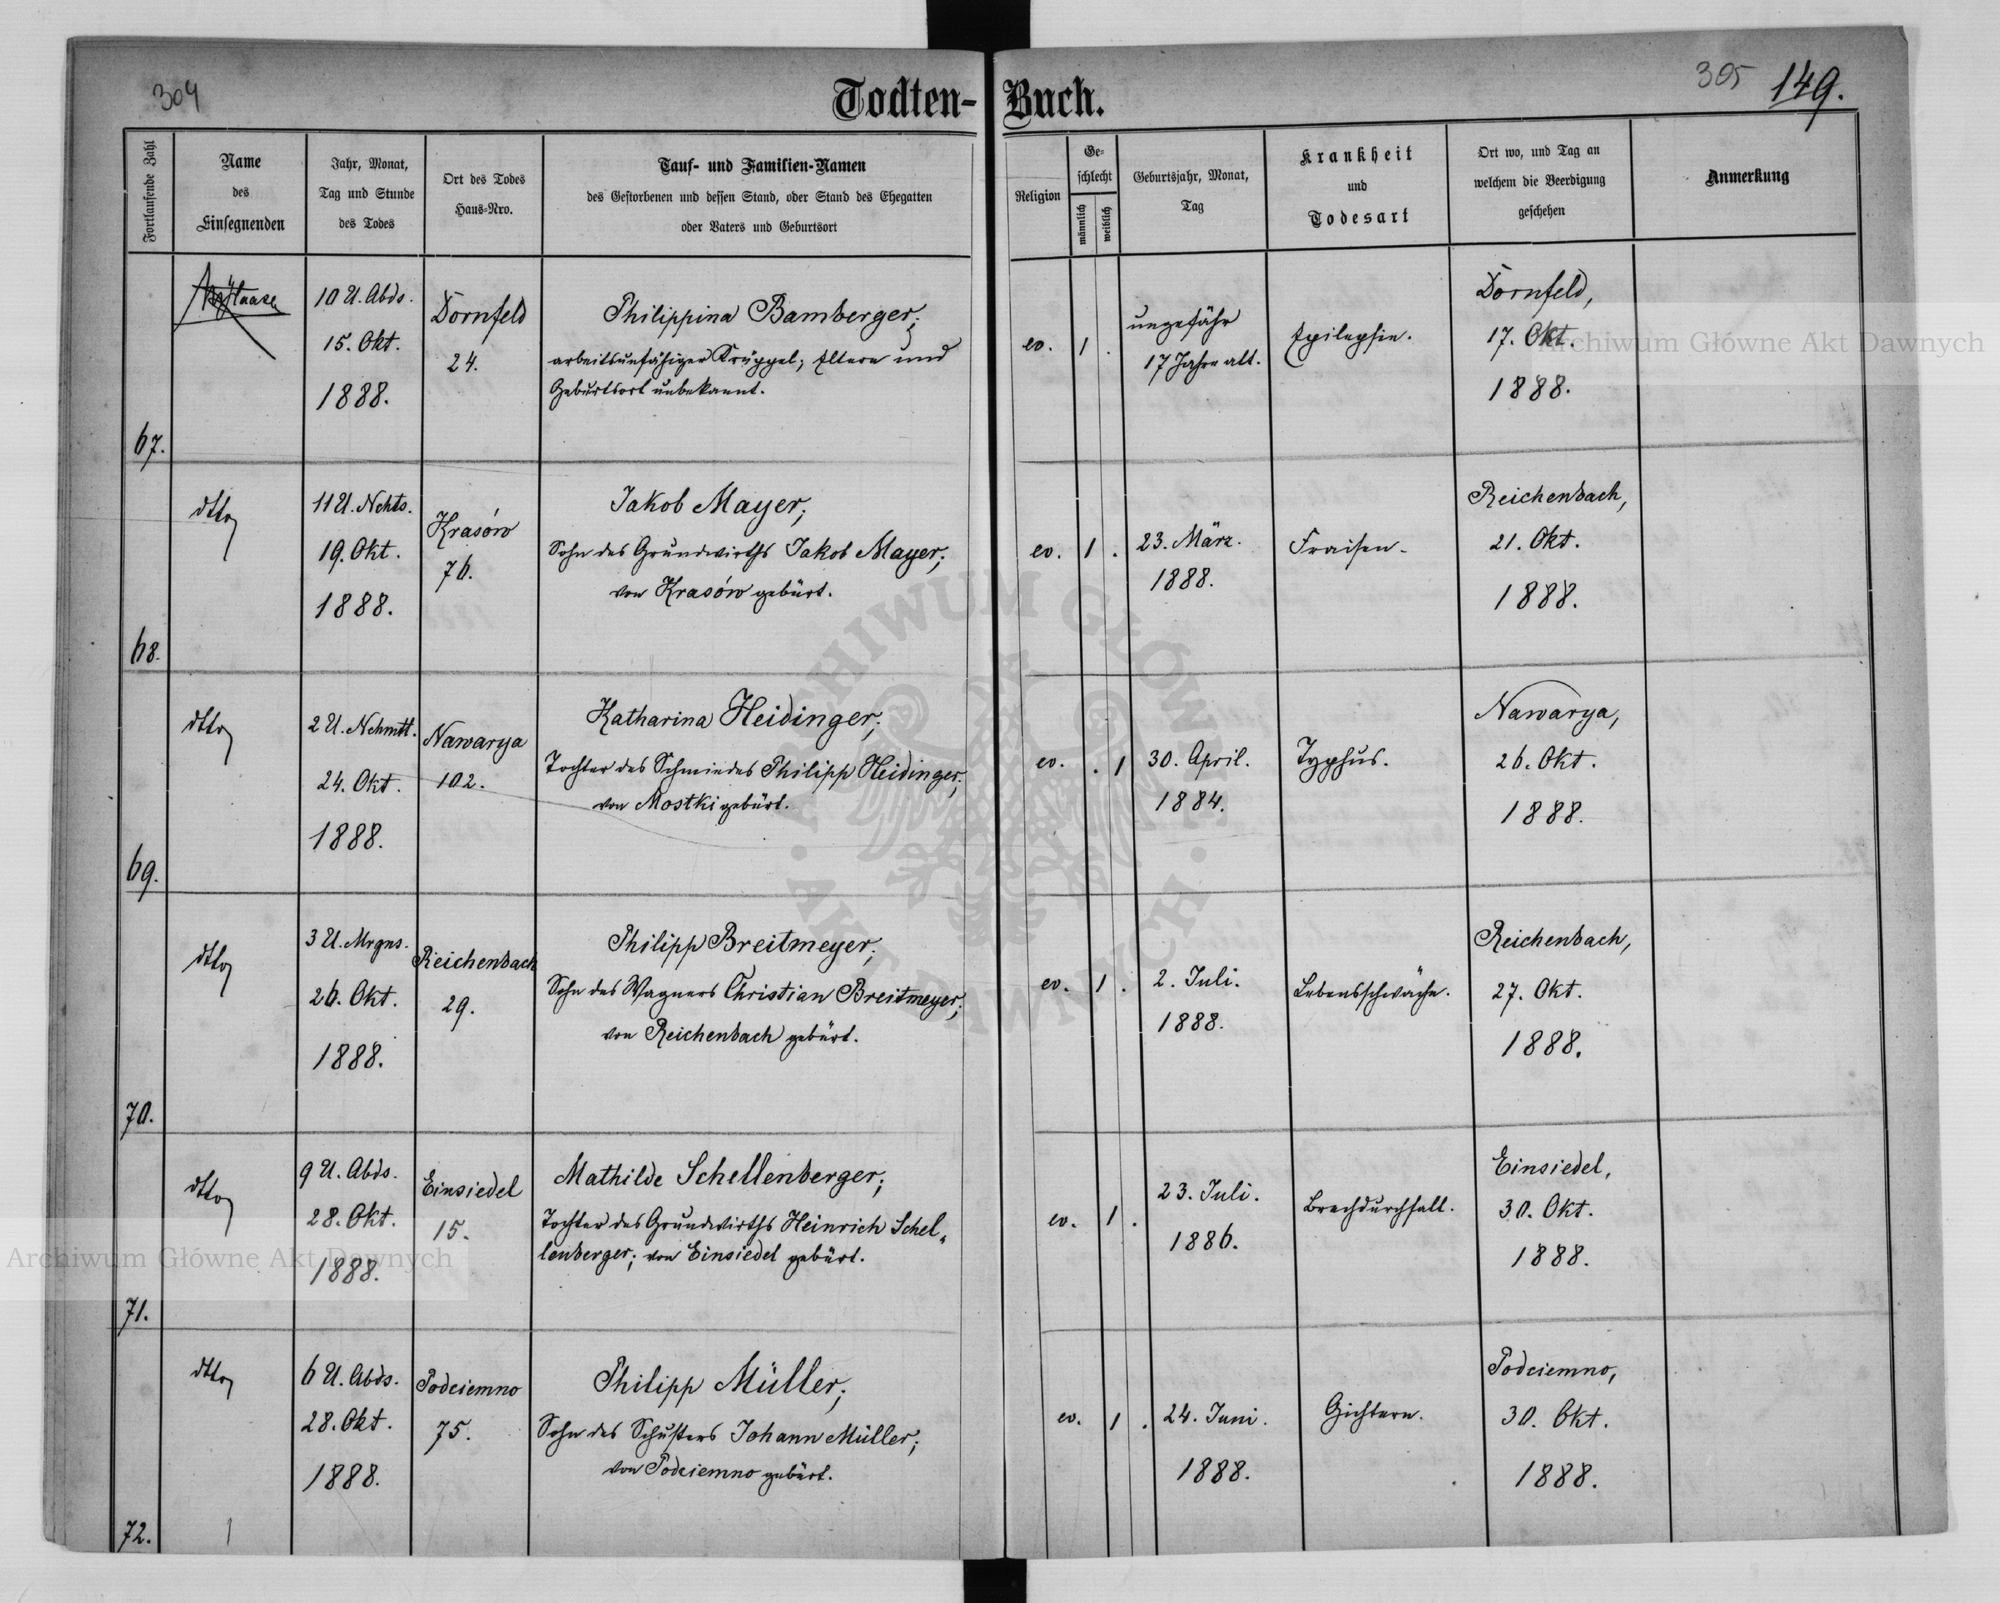 304
Todten-Buch.
305 149.
Fortlaufende Zahl
Name
des
Einsegnenden
Jahr, Monat,
Tag und Stunde
des Todes
Ort des Todes
Haus-Nro.
Tauf- und Familien-Namen
des Gestorbenen und dessen Stand, oder Stand des Ehegatten
oder Vaters und Geburtsort
Religion
Ge-
schlecht
männlich
weiblich
Geburtsjahr, Monat,
Tag
Krankheit
und
Todesart
Ort wo, und Tag an
welchem die Beerdigung
geschehen
Anmerkung
67.
10 U. Abds.
15. Okt.
1888.
Dornfeld
24.
Philippina Bamberger;
arbeitsunfähiger Krüppel; Eltern und
Geburtsort unbekannt.
ev.
1 .
ungefähr
17 Jahre alt.
Epilepsie.
Dornfeld,
17. Okt.
1888.
68.
dtto
11 U. Nchts.
19. Okt.
1888.
Krasów
76.
Jakob Mayer;
Sohn des Grundwirths Jakob Mayer;
von Krasów gebürt.
ev.
1 .
23. März.
1888.
Fraisen.
Reichenbach,
21. Okt.
1888.
69.
dtto
2 U. Nchmtt.
24. Okt.
1888.
Nawarya
102.
Katharina Heidinger;
Tochter des Schmiedes Philipp Heidinger;
von Mostki gebürt.
ev.
. 1
30. April.
1884.
Typhus.
Nawarya,
26. Okt.
1888.
70.
dtto
3 U. Mrgns.
26. Okt.
1888.
Reichenbach
29.
Philipp Breitmeyer;
Sohn des Wagners Christian Breitmeyer;
von Reichenbach gebürt.
ev.
1 .
2. Juli.
1888.
Lebensschwäche.
Reichenbach,
27. Okt.
1888.
71.
dtto
9 U. Abds.
28. Okt.
1888.
Einsiedel
15.
Mathilde Schellenberger;
Tochter des Grundwirths Heinrich Schel-
lenberger; von Einsiedel gebürt.
ev.
1 .
23. Juli.
1886.
Brechdurchfall.
Einsiedel,
30. Okt.
1888.
72.
dtto
6 U. Abds.
28. Okt.
1888.
Podciemno
75.
Philipp Müller;
Sohn des Schusters Johann Müller;
von Podciemno gebürt.
ev.
1 .
24. Juni.
1888.
Gichtern.
Podciemno,
30. Okt.
1888.
Archiwum Główne Akt Dawnych
Archiwum Główne Akt Dawnych
ARCHIWUM GŁÓWNE
AKT DAWNYCH